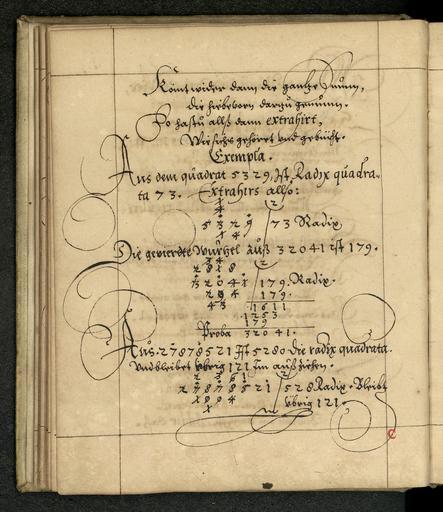 Kömt wider dann die gantze Sum̃,
die hiebevorn darzu genum̃.
So hastu allß dann extrahirt,
Wie sichs gehöret und gebürht.
Exempla.
Aus dem quadrat 5329, Ist Radix quadra-
ta 73. Extrahirs also:
5329 73 Radix
14
Die gevierdte Wurtzel auß 32041 ist 179.
32041 179. Radix.
179.
1611
1253
179
Proba 32041.
Aus 27878521 Ist 5280 die radix quadrata.
Und bleibet übrig 121 im außziehen.
27878521 528 Radix. Bleibt
übrig 121.